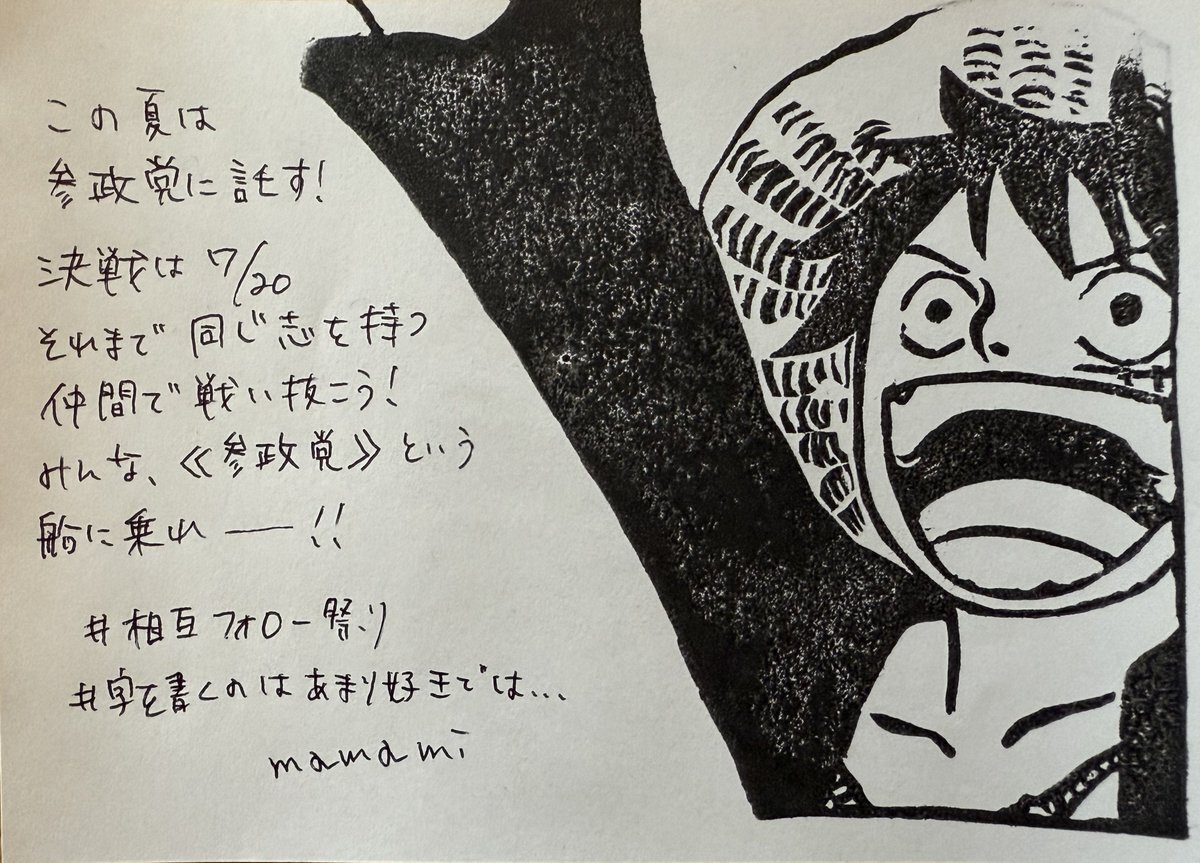 この夏は
参政党に託す!
決戦は 7/20
それまで 同じ志を持つ
仲間で戦い抜こう!
みんな、≪参政党≫という
船に乗れー!!
#相互フォロー祭り
#字を書くのはあまり好きでは...
mamami